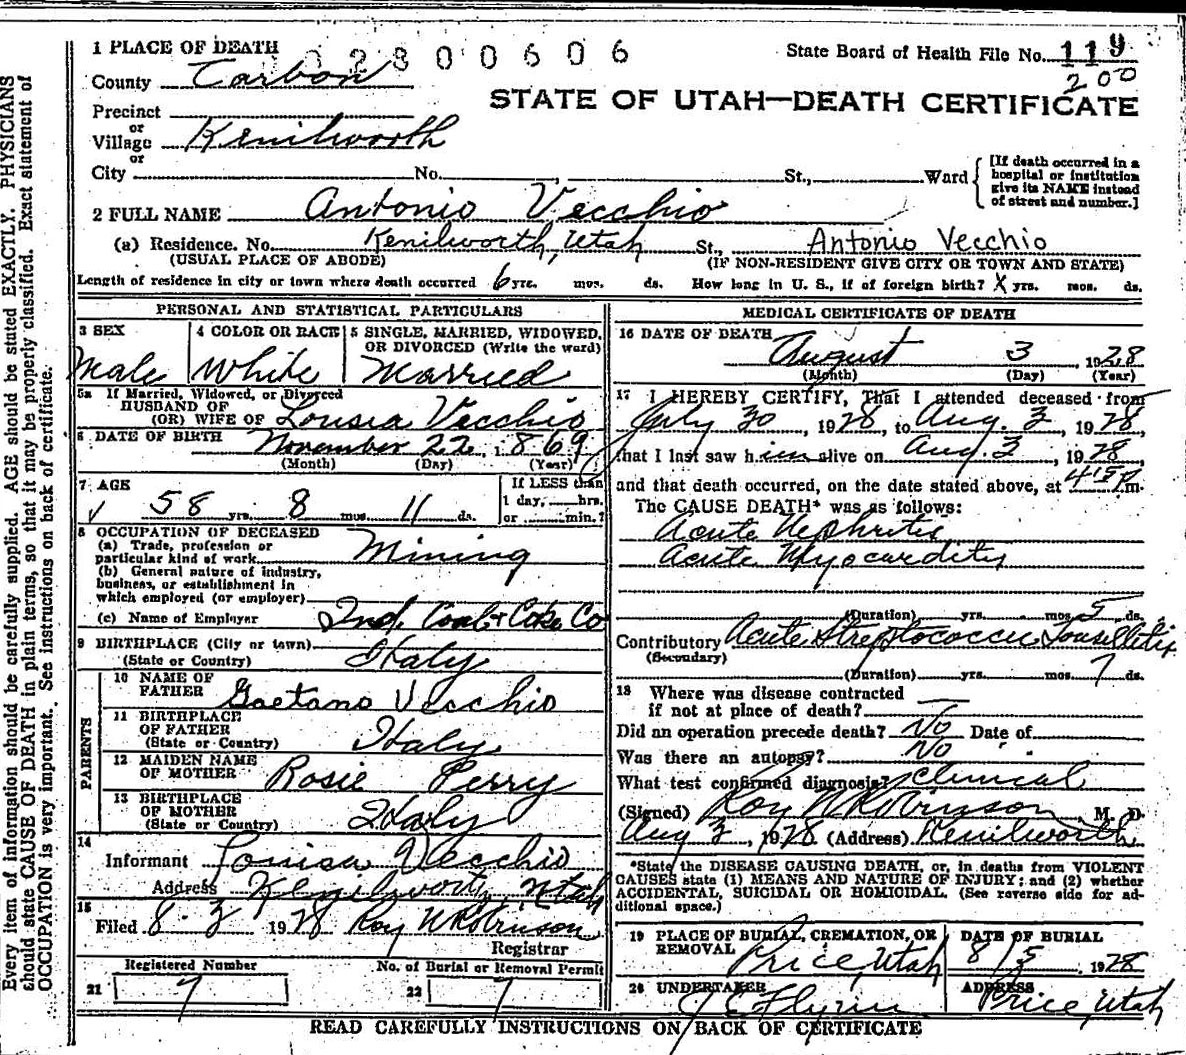 1 PLACE OF DEATH
02300606
State Board of Health File No. 119
200
County Carbon
STATE OF UTAH—DEATH CERTIFICATE
Precinct
or
Village Kenilworth
or
City No. , St., Ward
[If death occurred in a
hospital or institution
give its NAME instead
of street and number.]
2 FULL NAME Antonio Vecchio
(a) Residence. No. Kenilworth, Utah St., Antonio Vecchio
(USUAL PLACE OF ABODE) (IF NON-RESIDENT GIVE CITY OR TOWN AND STATE)
Length of residence in city or town where death occurred 6 yrs. mos. ds. How long in U. S., if of foreign birth? X yrs. mos. ds.
PERSONAL AND STATISTICAL PARTICULARS
3 SEX
Male
4 COLOR OR RACE
White
5 SINGLE, MARRIED, WIDOWED,
OR DIVORCED (Write the word)
Married
5a If Married, Widowed, or Divorced
HUSBAND OF
(OR) WIFE OF Lousia Vecchio
6 DATE OF BIRTH November 22, 1869
(Month) (Day) (Year)
7 AGE
58 yrs. 8 mos. 11 ds.
If LESS than
1 day, hrs.
or min.?
8 OCCUPATION OF DECEASED
(a) Trade, profession or
particular kind of work Mining
(b) General nature of industry,
business, or establishment in
which employed (or employer)
(c) Name of Employer Ind. Coal + Coke Co
9 BIRTHPLACE (City or town)
(State or Country) Italy
PARENTS
10 NAME OF
FATHER Gaetano Vecchio
11 BIRTHPLACE
OF FATHER
(State or Country) Italy
12 MAIDEN NAME
OF MOTHER Rosie Perry
13 BIRTHPLACE
OF MOTHER
(State or Country) Italy
14
Informant Louisa Vecchio
Address Kenilworth, Utah
15
Filed 8-3 1928 Roy W Robinson
Registrar
Registered Number
21 7
No. of Burial or Removal Permit
22 7
MEDICAL CERTIFICATE OF DEATH
16 DATE OF DEATH
August 3, 1928
(Month) (Day) (Year)
17 I HEREBY CERTIFY, That I attended deceased from
July 30, 1928, to Aug. 3, 1928,
that I last saw him alive on Aug. 3, 1928,
and that death occurred, on the date stated above, at 4:15 P m.
The CAUSE DEATH* was as follows:
Acute Nephritis
Acute Myocarditis
(Duration) yrs. mos. 5 ds.
Contributory Acute Streptococcic Tonsillitis
(Secondary)
(Duration) yrs. mos. 7 ds.
18 Where was disease contracted
if not at place of death? —
Did an operation precede death? No Date of
Was there an autopsy? No
What test confirmed diagnosis? Clinical
(Signed) Roy W Robinson M. D.
Aug 3, 1928 (Address) Kenilworth
*State the DISEASE CAUSING DEATH, or, in deaths from VIOLENT
CAUSES state (1) MEANS AND NATURE OF INJURY; and (2) whether
ACCIDENTAL, SUICIDAL OR HOMICIDAL. (See reverse side for ad-
ditional space.)
19 PLACE OF BURIAL, CREMATION, OR
REMOVAL
Price, Utah
DATE OF BURIAL
8/5, 1928
20 UNDERTAKER
J E Flynn
ADDRESS
Price, Utah
READ CAREFULLY INSTRUCTIONS ON BACK OF CERTIFICATE
Every item of information should be carefully supplied. AGE should be stated EXACTLY. PHYSICIANS
should state CAUSE OF DEATH in plain terms, so that it may be properly classified. Exact statement of
OCCUPATION is very important. See instructions on back of certificate.